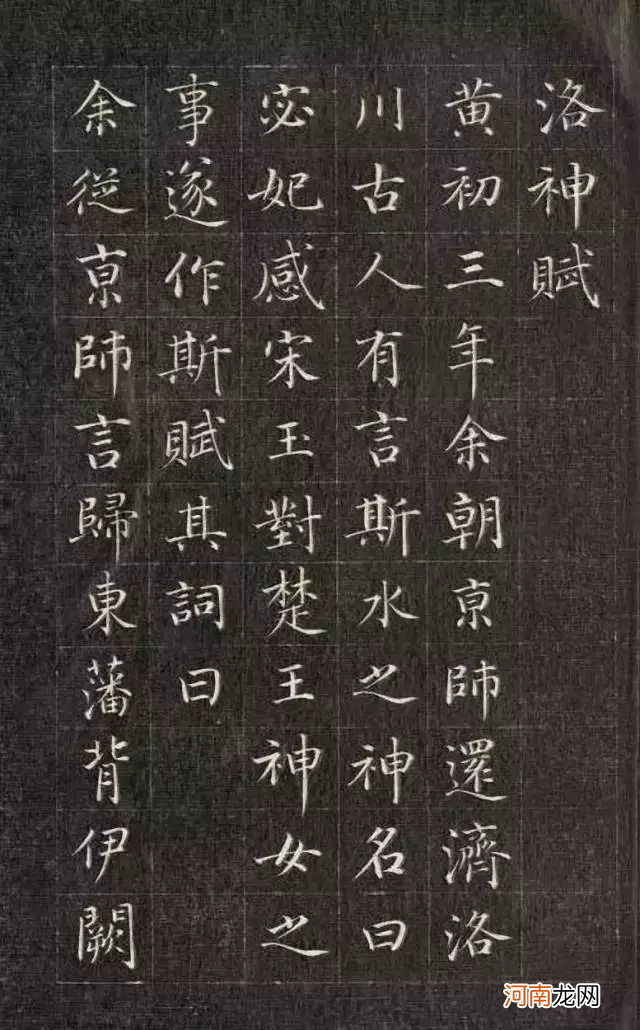 洛神賦
黃初三年余朝京師還濟洛
川古人有言斯水之神名曰
宓妃感宋玉對楚王神女之
事遂作斯賦其詞曰
余從京師言歸東藩背伊闕
河南龙网